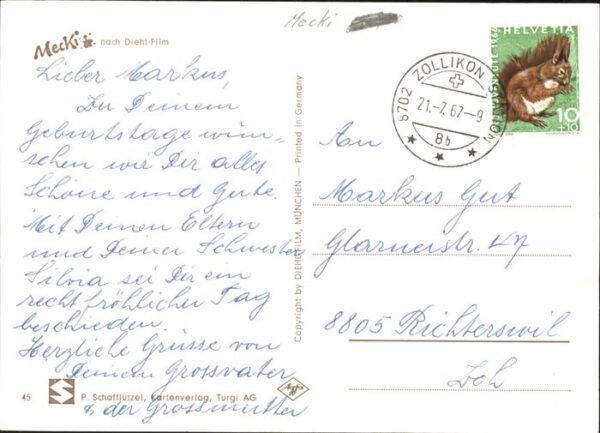 Mecki nach Diehl-Film
Mecki
Lieber Markus,
Zu Deinem
Geburtstage wün-
schen wir Dir alles
Schöne und Gute.
Mit Deinen Eltern
und Deiner Schwester
Silvia sei Dir ein
recht fröhlicher Tag
beschieden.
Herzliche Grüsse von
Deinem Grossvater
& der Grossmutter
45
P. Schafflützel, Kartenverlag, Turgi AG
Copyright by DIEHL-FILM, MÜNCHEN — Printed in Germany
8702 ZOLLIKON
21.-7.67-9
8b
ZOLLIKON
HELVETIA
PRO JUVENTUTE 1966
10
+10
An
Markus Gut
Glarnerstr. 47
8805 Richterswil
Zch